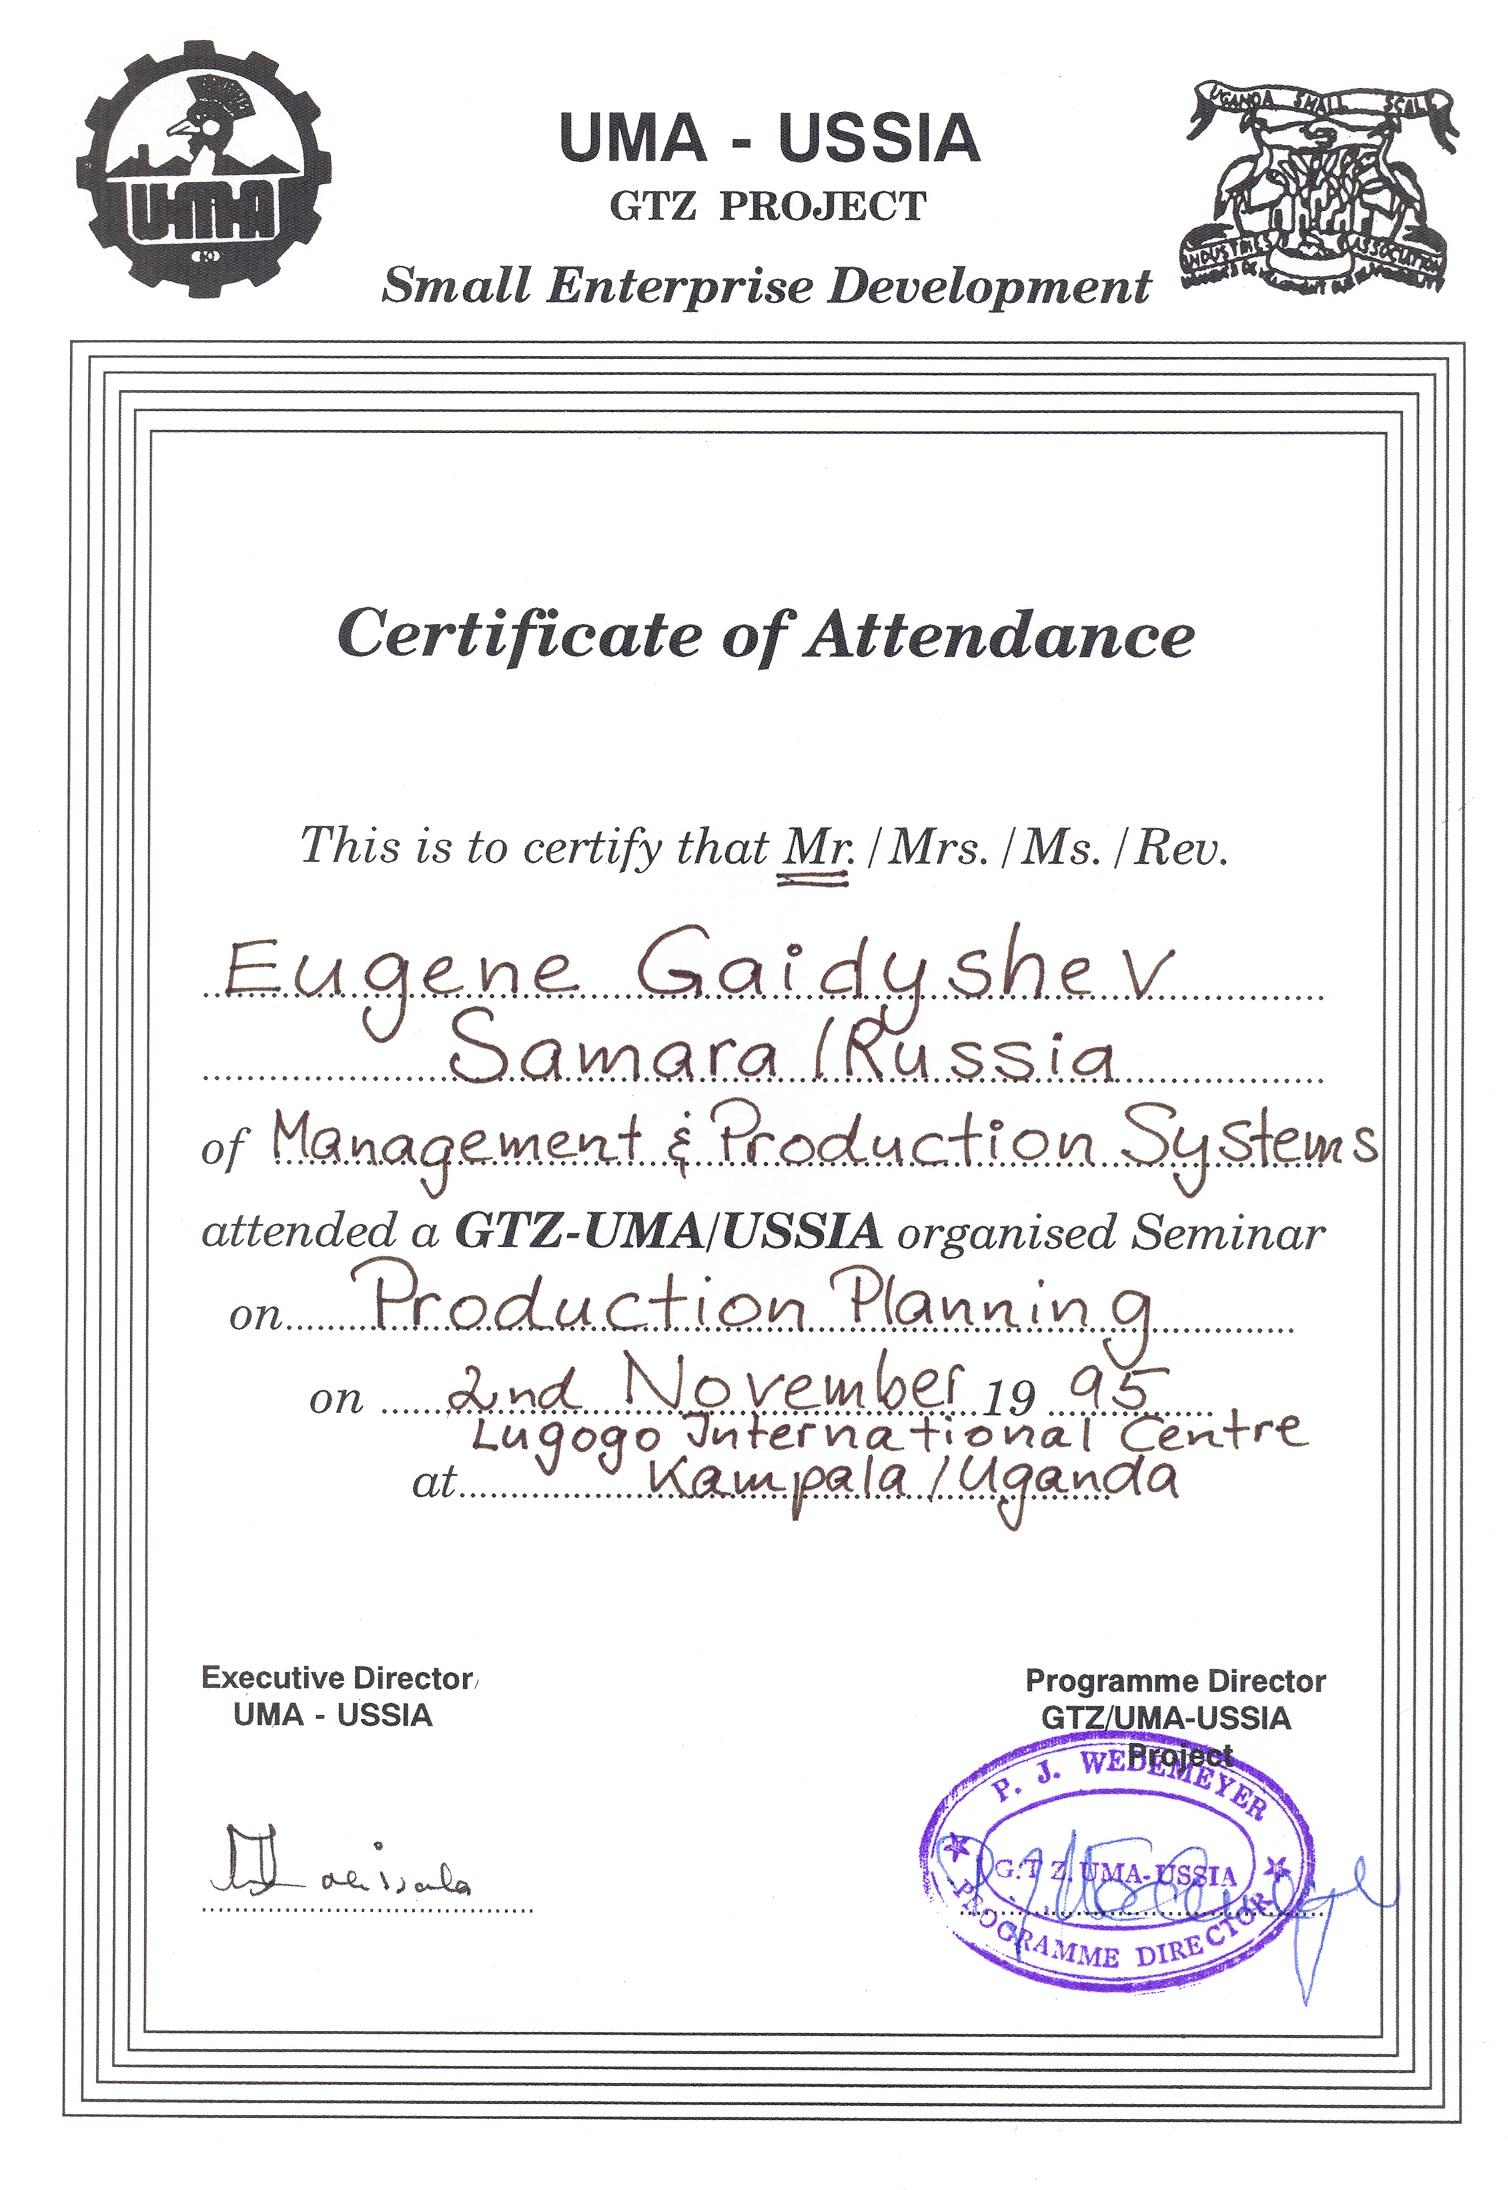 UMA
UMA - USSIA
GTZ PROJECT
Small Enterprise Development
UGANDA SMALL SCALE
INDUSTRIES ASSOCIATION
Certificate of Attendance
This is to certify that Mr. / Mrs. / Ms. / Rev.
Eugene Gaidyshev
Samara / Russia
of Management & Production Systems
attended a GTZ-UMA/USSIA organised Seminar
on Production Planning
on 2nd November 19 95
Lugogo International Centre
at Kampala / Uganda
Executive Director
UMA - USSIA
Programme Director
GTZ/UMA-USSIA
Project
P. J. WEDEMEYER
G.T.Z. UMA-USSIA
PROGRAMME DIRECTOR